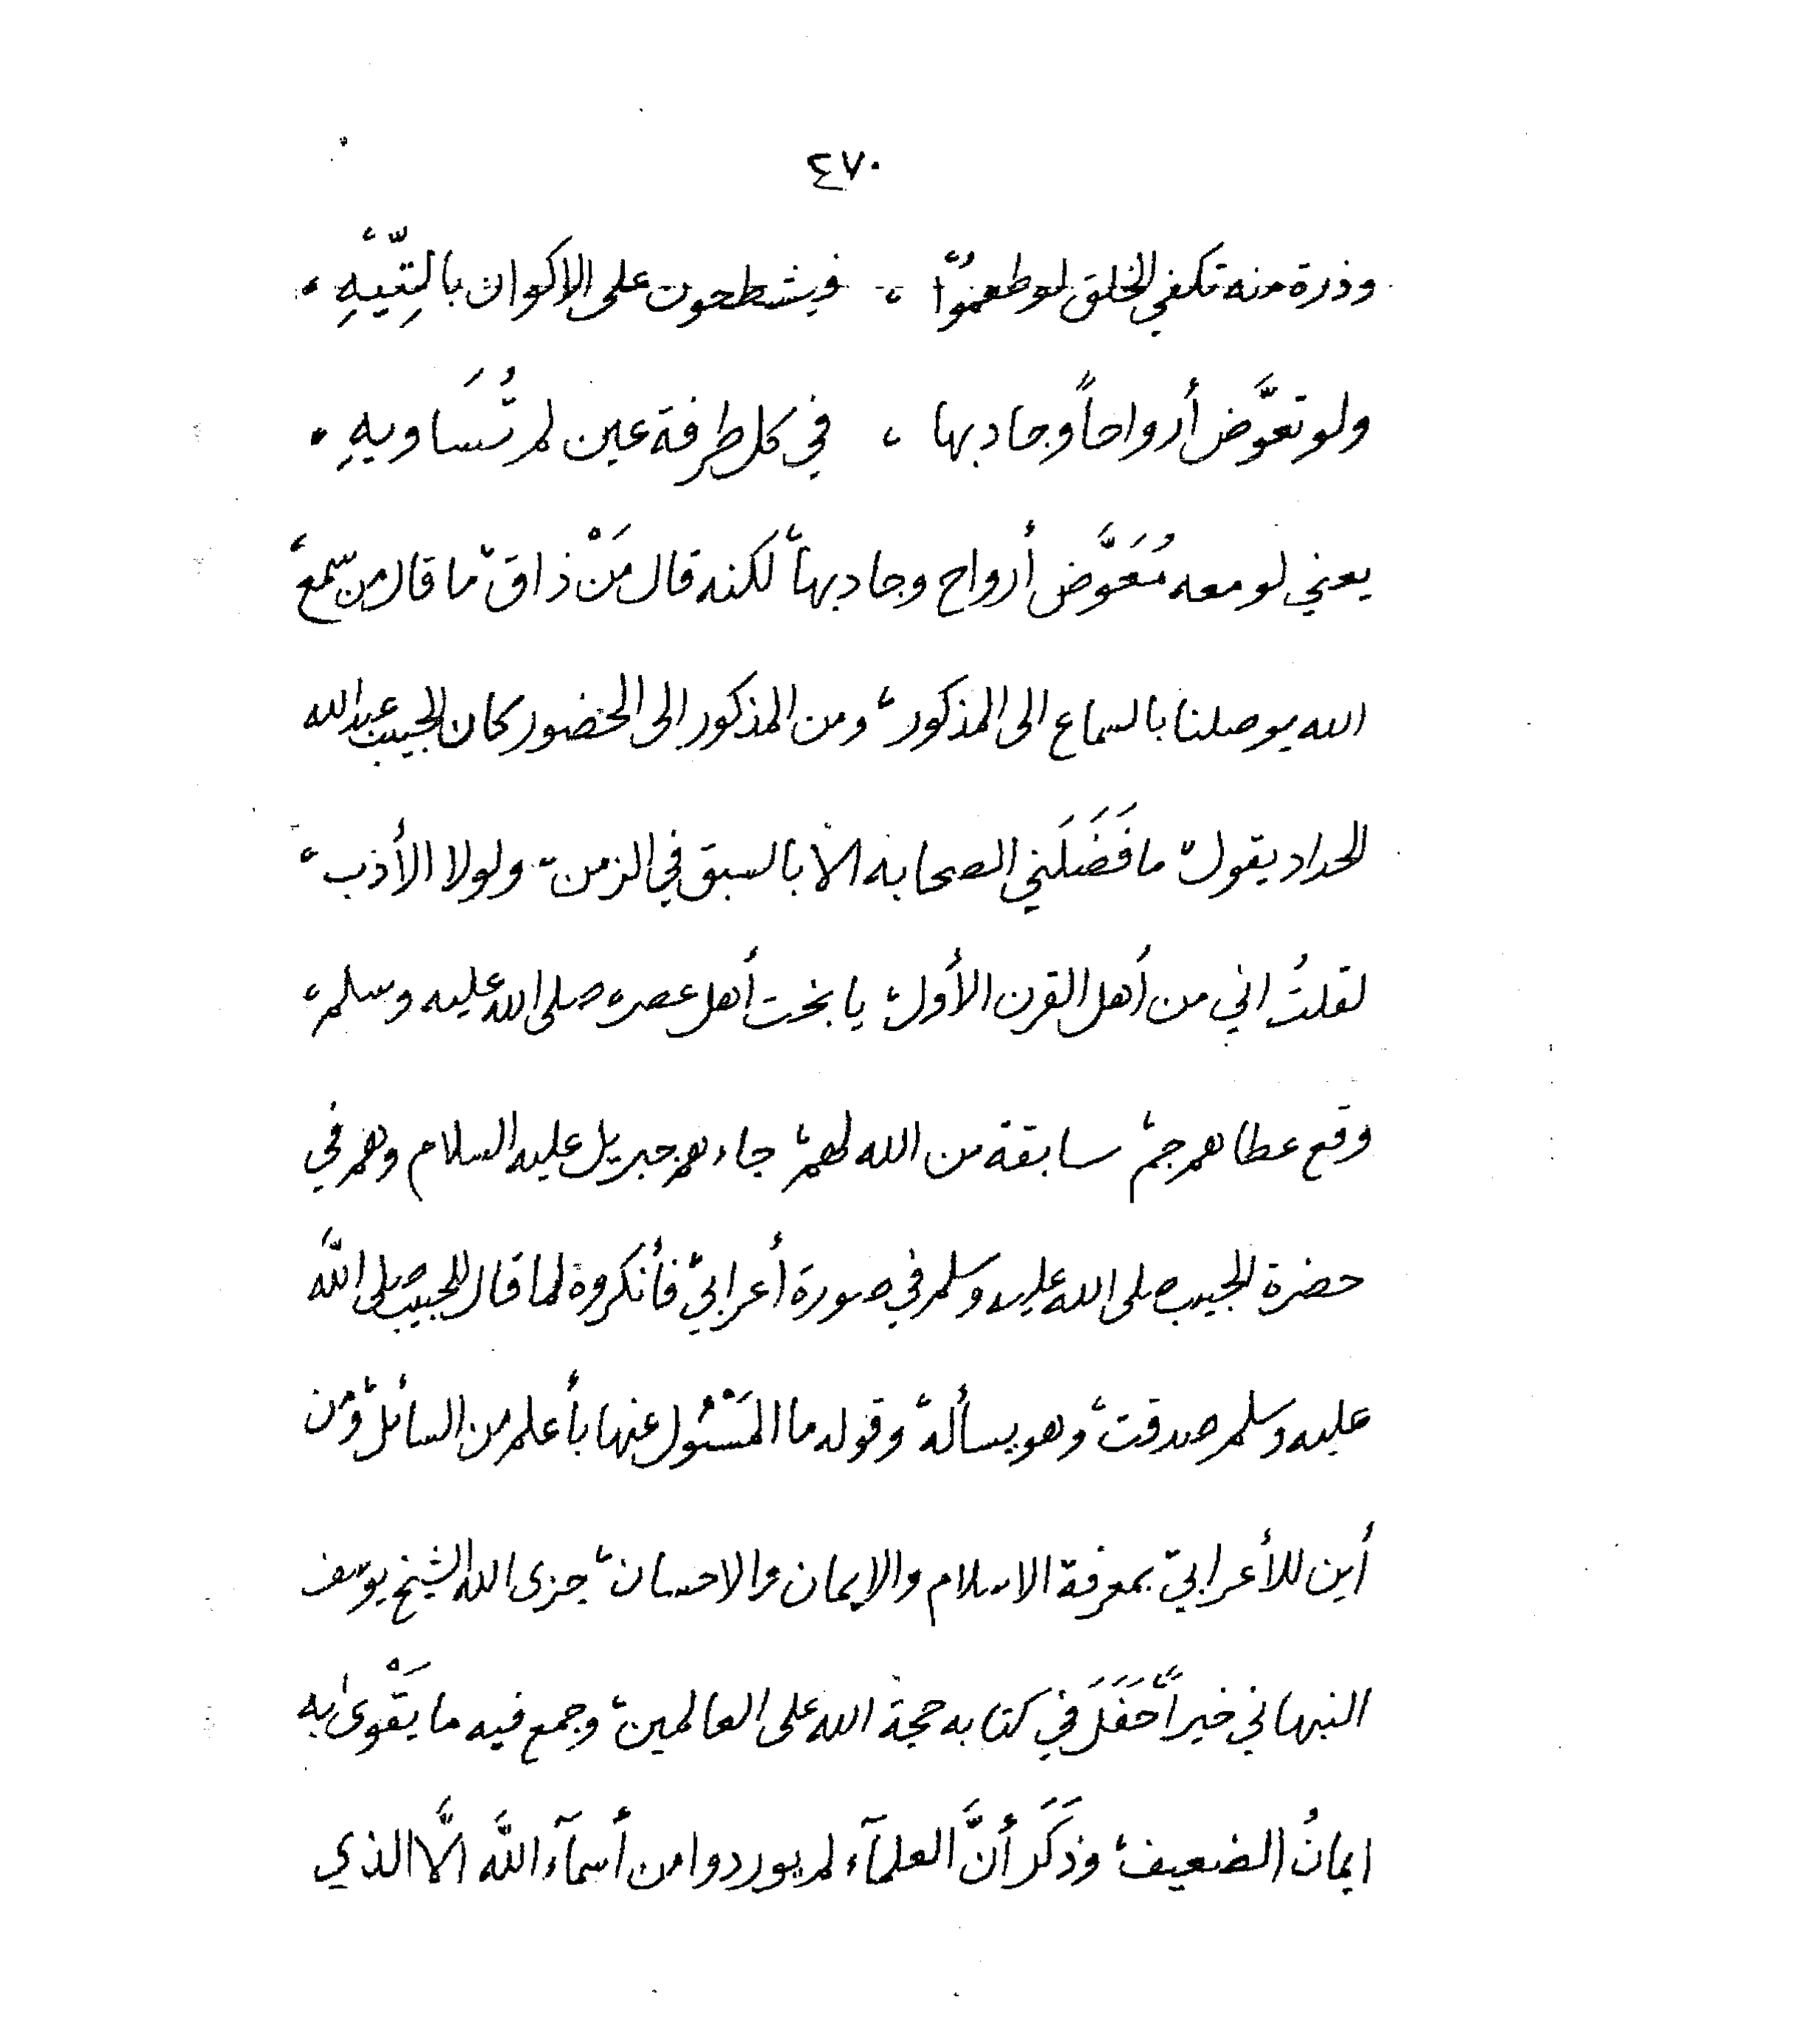 ٤٧٠
وذرة منه تكفي الخلق لو طعموا ، فيشطحون على الاكوان بالتِّيهِ ،
ولو تعوَّض أرواحاً وجاد بها ، في كل طرفة عين لم تُسَاويهِ .
يعني لو معه مُعَوَّض أرواح وجاد بها، لكنه قال مَنْ ذاق، ما قال من سمع،
الله يوصلنا بالسماع الى المذكور، ومن المذكور الى الحضور كان الحبيب عبدالله
الحداد يقول، ما فَضَلَني الصحابه الا بالسبق في الزمن، ولولا الأدب،
لقلتُ اني من أهل القرن الأول، يا بخت أهل عصره صلى الله عليه وسلم،
وقع عطاهم جم، سابقة من الله لهم، جاءهم جبريل عليه السلام وهم في
حضرة الحبيب صلى الله عليه وسلم في صورة أعرابي، فأنكروه لما قال للحبيب صلى اللَّه
عليه وسلم صدقت، وهو يسأله، وقوله ما المَسْئُول عنها بأعلم من السائل، ومن
أين للأعرابيّ بمعرفة الاسلام والايمان والاحسان، جزى الله الشيخ يوسف
النبهاني خيراً، حَفَلَ في كتابه حجة الله على العالمين، وجمع فيه ما يَقْوىٰ به
ايمانُ الضعيف، وذَكَر أنَّ العلمآء لم يوردوا من أسمآء اللَّه الَّا الذي